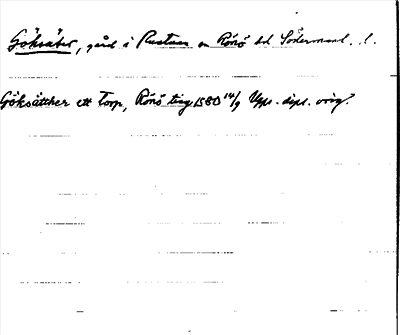 Göksäter, gård i Rustun en Rönö hd Södermanl. l.
Göksätther ett Torp, Rönö ting 1580 14/9 Upps. dipl. orig.